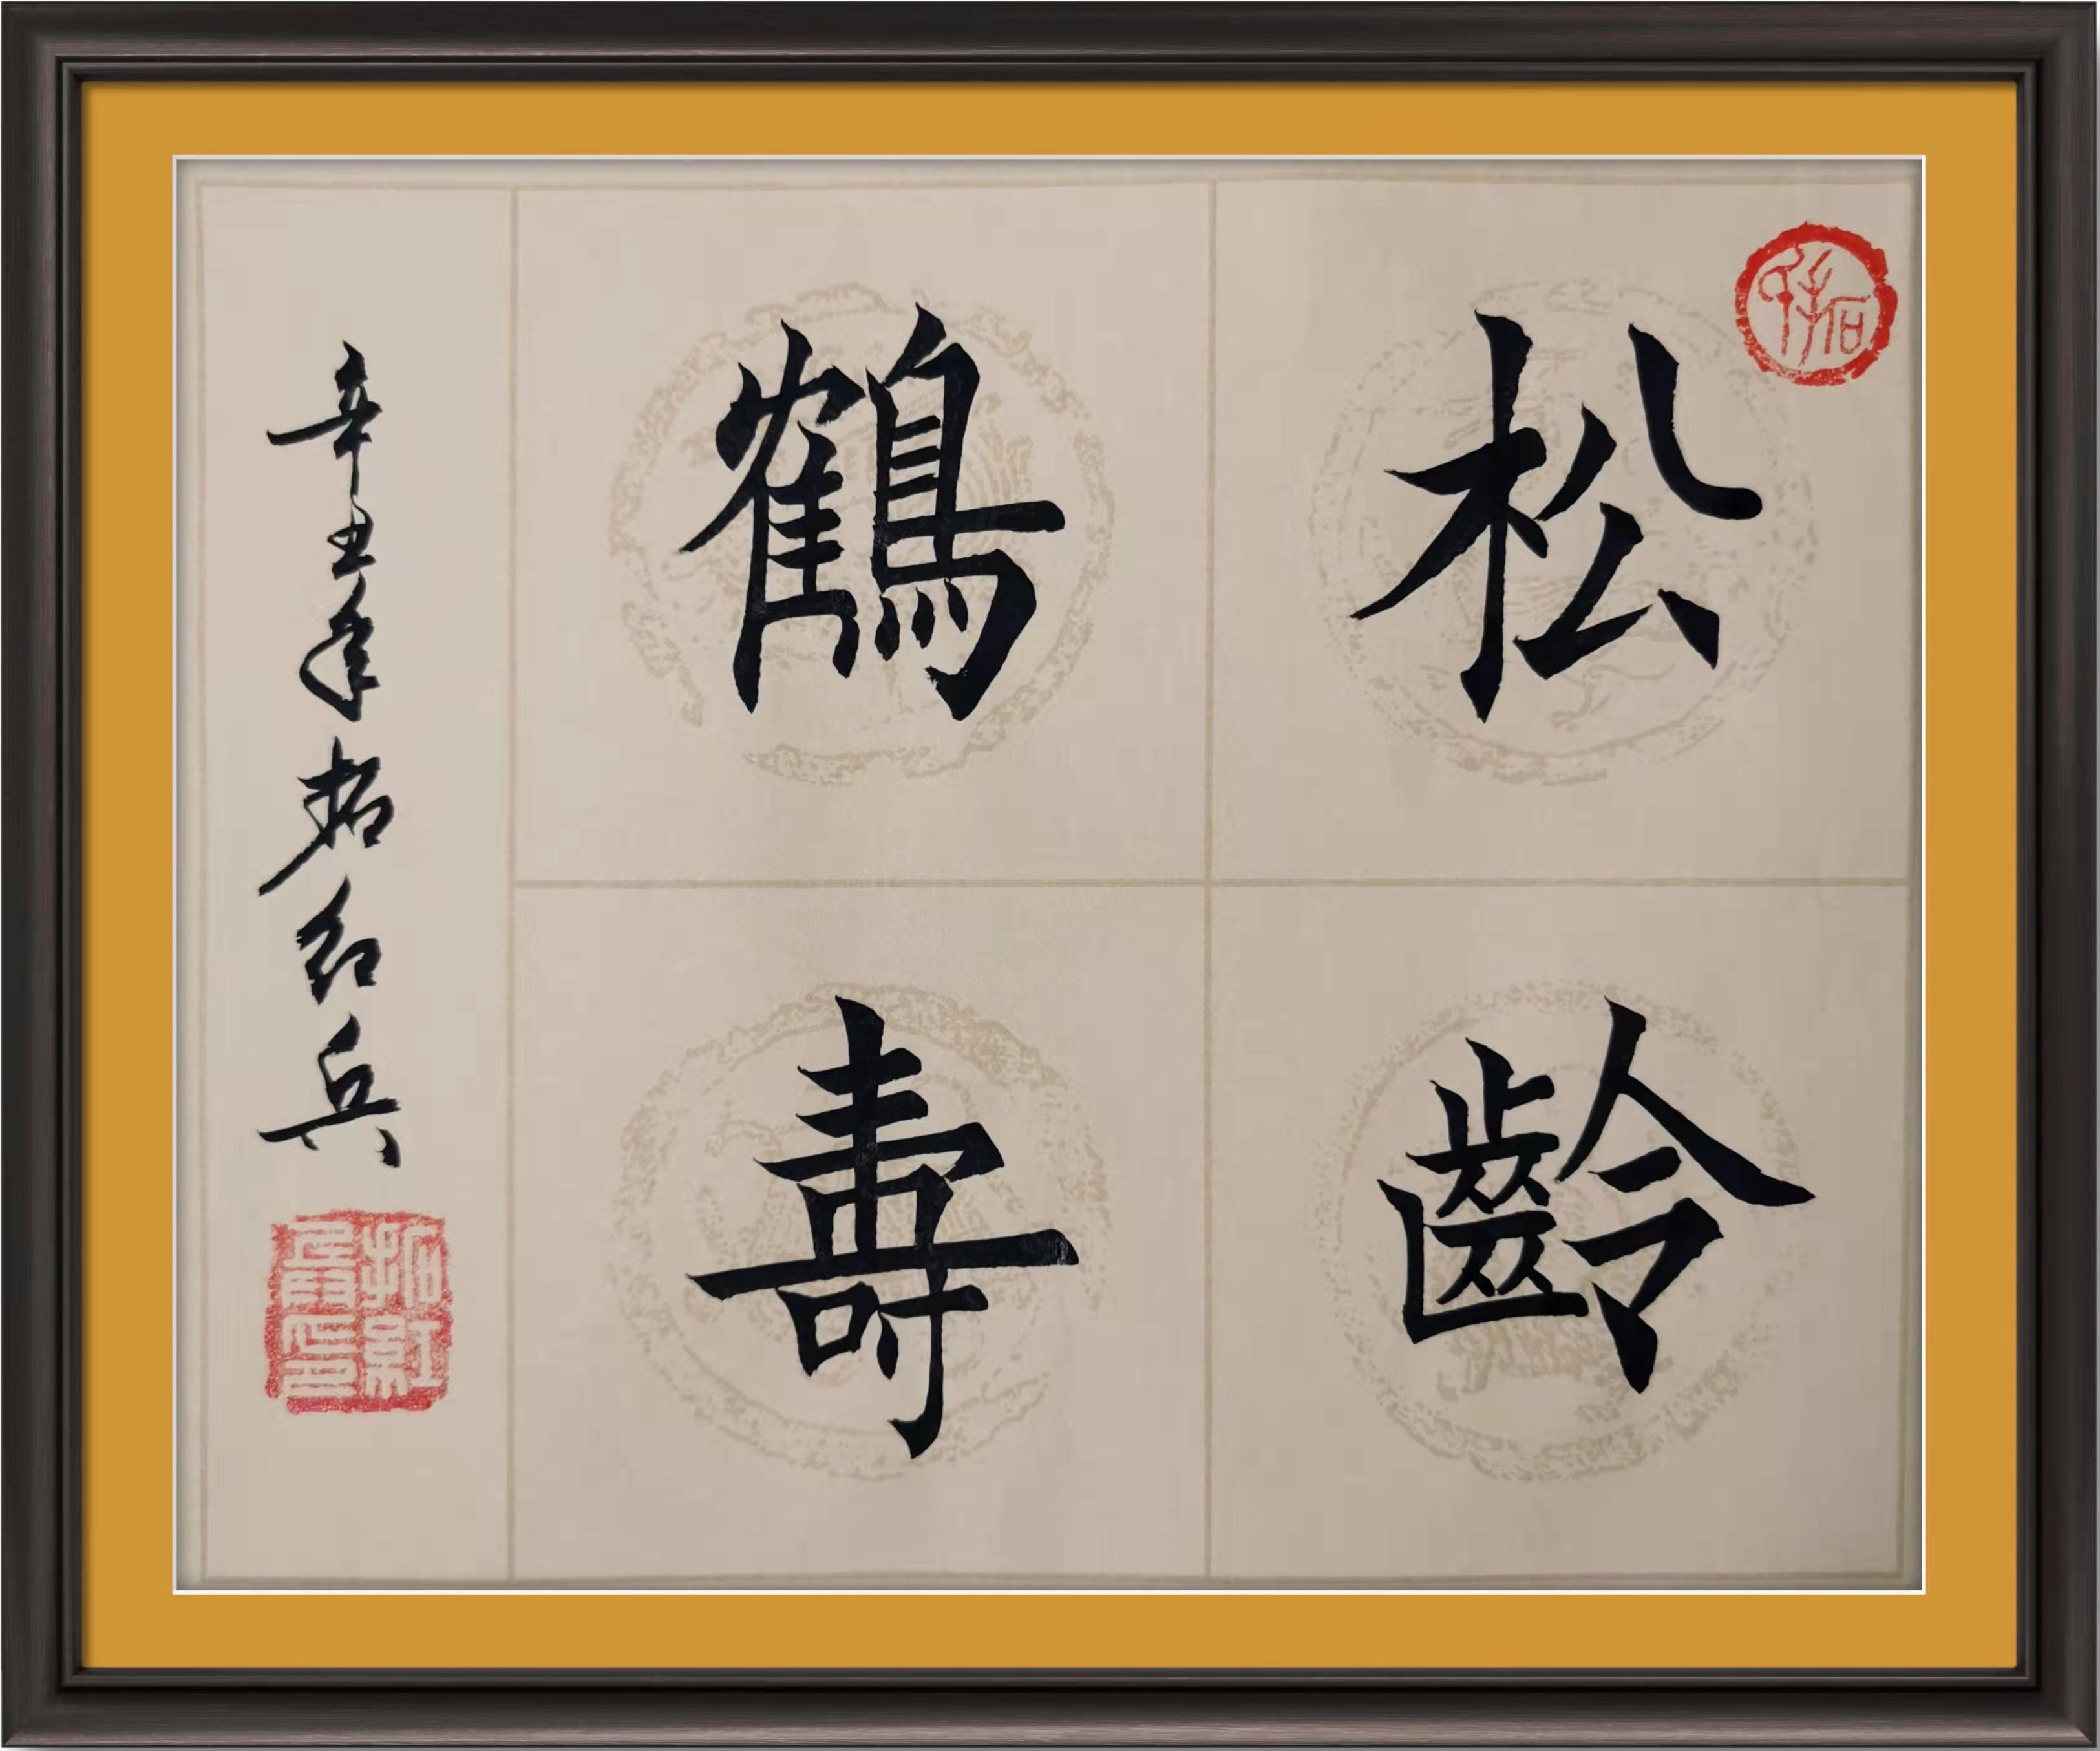 松齡
鶴壽
辛丑年拓红兵